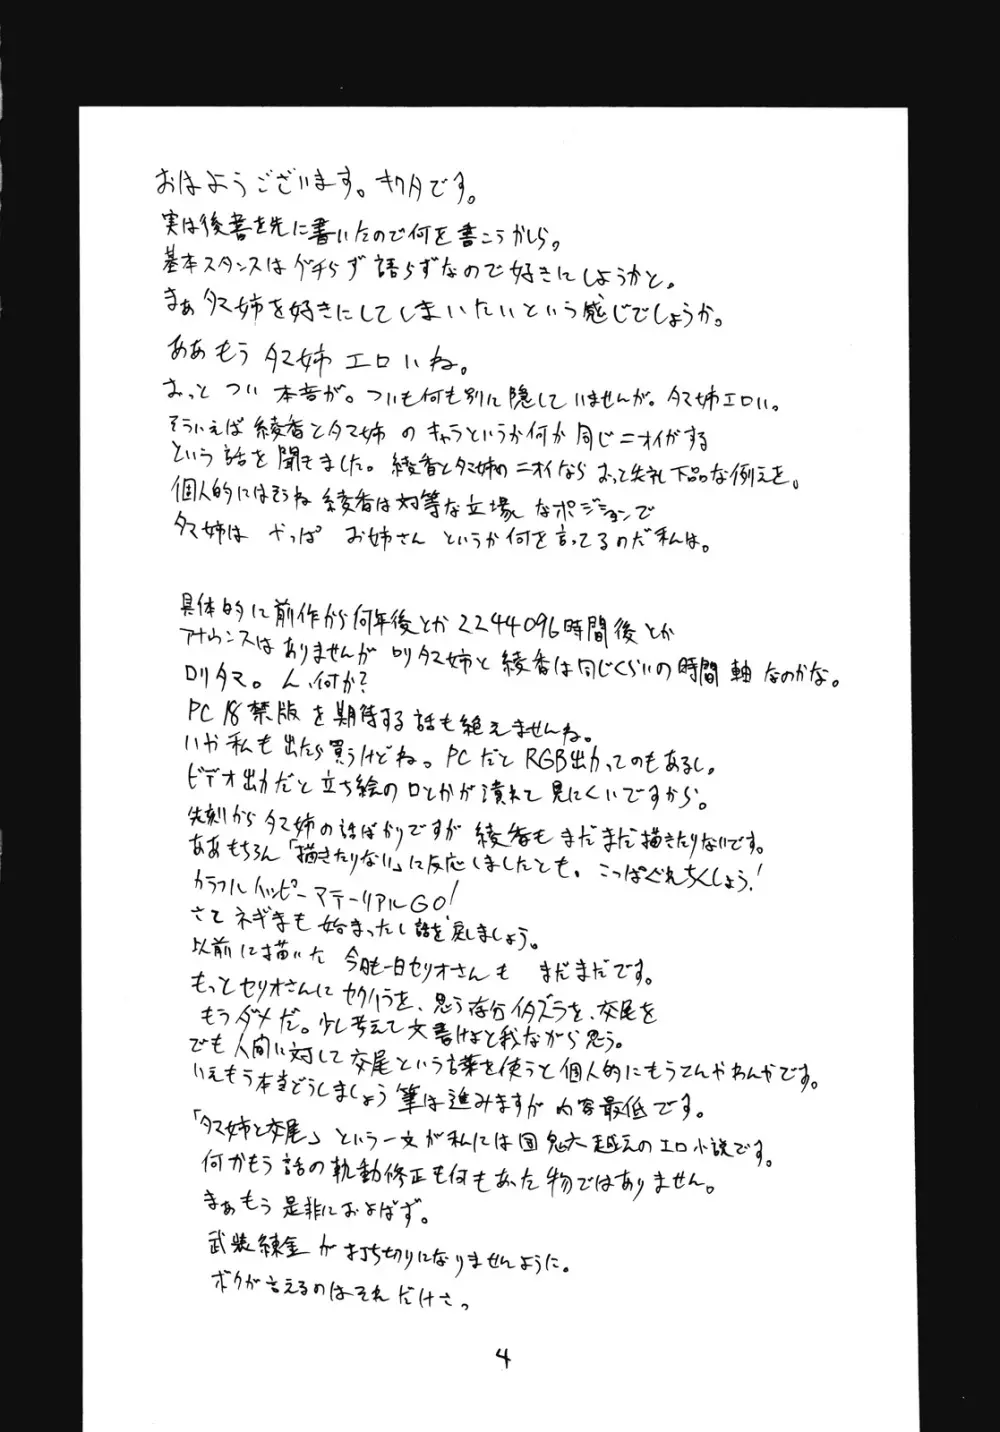 おはようございます。キクタです。
実は後書を先に書いたので何を書こうかしら。
基本スタンスは ゲチらず 語らずなので好きにしようかと。
まぁ タマ姉を好きにしてしまいたいという感じでしょうか。
ああもう タマ姉 エロいね。
おっと つい 本音が。ついも何も別に隠していませんが。タマ姉エロい。
そういえば 綾香とタマ姉 の キャラというか何か同じニオイがする
という話を聞きました。綾香とタマ姉のニオイなら おっと失礼 下品な例えを。
個人的にはそうね 綾香は対等な立場 なポジションで
タマ姉は やっぱ お姉さん というか何を言ってるのだ私は。
具体的に前作から何年後とか2244096時間後とか
アナウンスはありませんが ロリタマ姉と 綾香は同じくらいの時間軸 なのかな。
ロリタマ。ん、何か?
PC18禁版を期待する話も絶えませんね。
いや私も出たら買うけどね。PCだと RGB出力ってのもあるし。
ビデオ出力だと立ち絵の口とかが潰れて見にくいですから。
先刻から タマ姉の話ばかりですが 綾香も まだまだ描きたりないです。
ああもちろん「描きたりない」に反応しましたとも。こっぱぐれちくしょう!
カラフル ハッピー マテーリアル GO!
さて ネギまも 始まったし 話を戻しましょう。
以前に描いた 今日も一日セリオさんも まだまだです。
もっとセリオさんに セクハラを、思う存分イタズラを、交尾を
もうダメだ。少し考えて文書けよと我ながら思う。
でも 人間に対して交尾という言葉を使うと個人的にもうてんやわんやです。
いえもう本当どうしましょう 筆は進みますが 内容最低です。
「タマ姉と交尾」という一文が私には団鬼六越えのエロ小説です。
何かもう話の軌動修正も何もあった物ではありません。
まぁもう 是非におよばず。
武装練金が打ち切りになりませんように。
ボクが言えるのはそれだけさっ
4